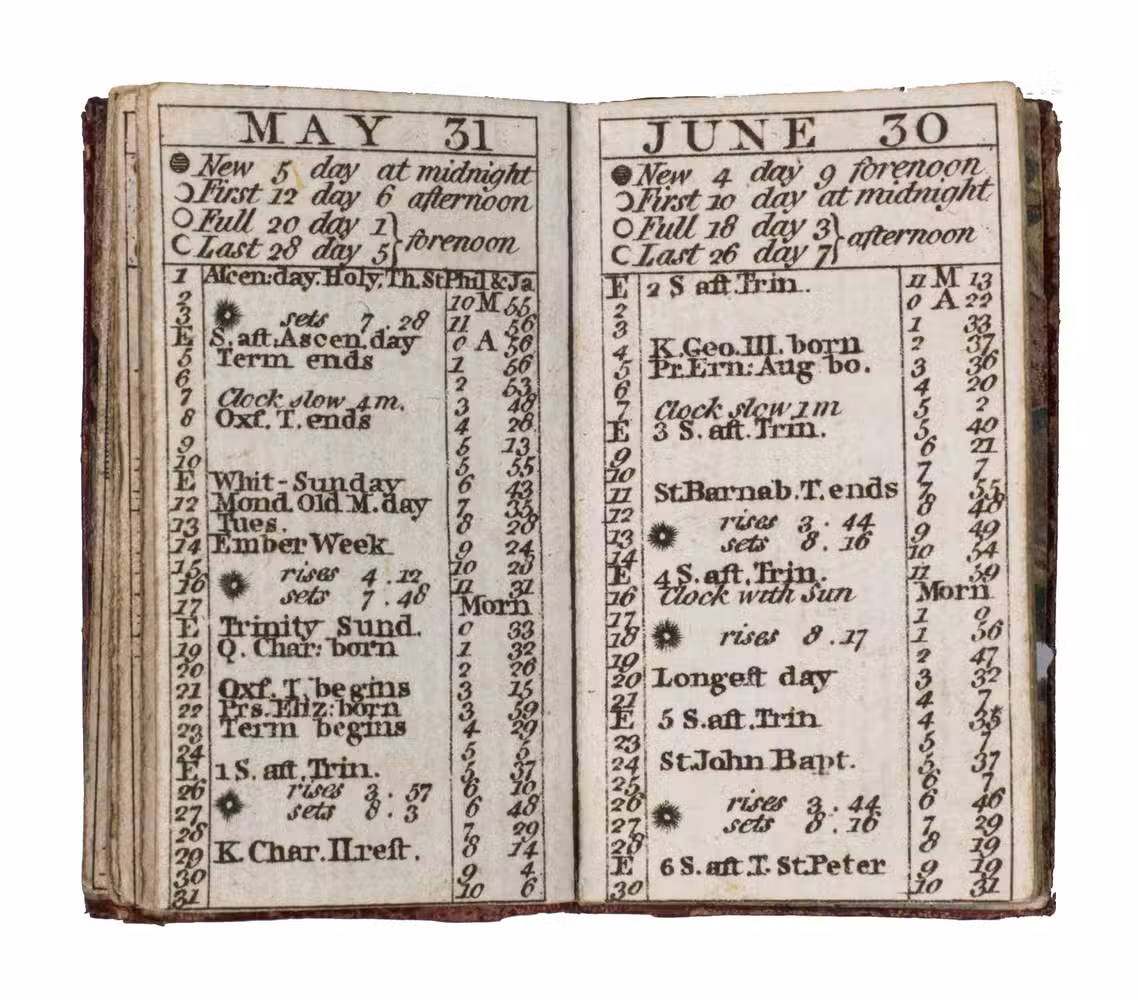 MAY 31
New 5 day at midnight
First 12 day 6 afternoon
Full 20 day 1
Last 28 day 5 } forenoon
1 Aſcen:day.Holy.Th.St Phil & Ja
2 10 M 55
3 sets 7.28 11 56
E S.aft.Aſcen.day 0 A 56
5 Term ends 1 56
6 2 53
7 Clock slow 4m. 3 48
8 Oxf.T.ends 4 28
9 5 13
10 5 55
E Whit-Sunday 6 43
12 Mond.Old M.day 7 35
13 Tues. 8 28
14 Ember Week 9 24
15 rises 4.12 10 28
16 sets 7.48 11 31
17 Morn
E Trinity Sund. 0 33
19 Q. Char: born 1 32
20 2 26
21 Oxf.T.begins 3 15
22 Prs.Eliz:born 3 59
23 Term begins 4 29
24 5 5
E 1 S.aft.Trin. 5 37
26 rises 3.57 6 10
27 sets 8.3 6 48
28 7 29
29 K.Char.II.reſt. 8 14
30 9 4
31 10 6
JUNE 30
New 4 day 9 forenoon
First 10 day at midnight
Full 18 day 3
Last 26 day 7 } afternoon
E 2 S aft.Trin. 11 M 13
2 0 A 22
3 1 33
4 K.Geo.III.born 2 37
5 Pr.Ern:Aug bo. 3 36
6 4 20
7 Clock slow 1m 5 2
E 3 S.aft.Trin. 5 40
9 6 21
10 7 7
11 St Barnab.T.ends 7 55
12 rises 3.44 8 48
13 sets 8.16 9 49
14 10 54
E 4 S.aft.Trin. 11 59
16 Clock with Sun Morn
17 1 0
18 rises 8.17 1 56
19 2 47
20 Longeſt day 3 32
21 4 7
E 5 S.aft.Trin 4 35
23 5 7
24 St John Bapt. 5 37
25 6 7
26 rises 3.44 6 46
27 sets 8.16 7 29
28 8 19
E 6 S.aft T. St.Peter 9 19
30 10 31